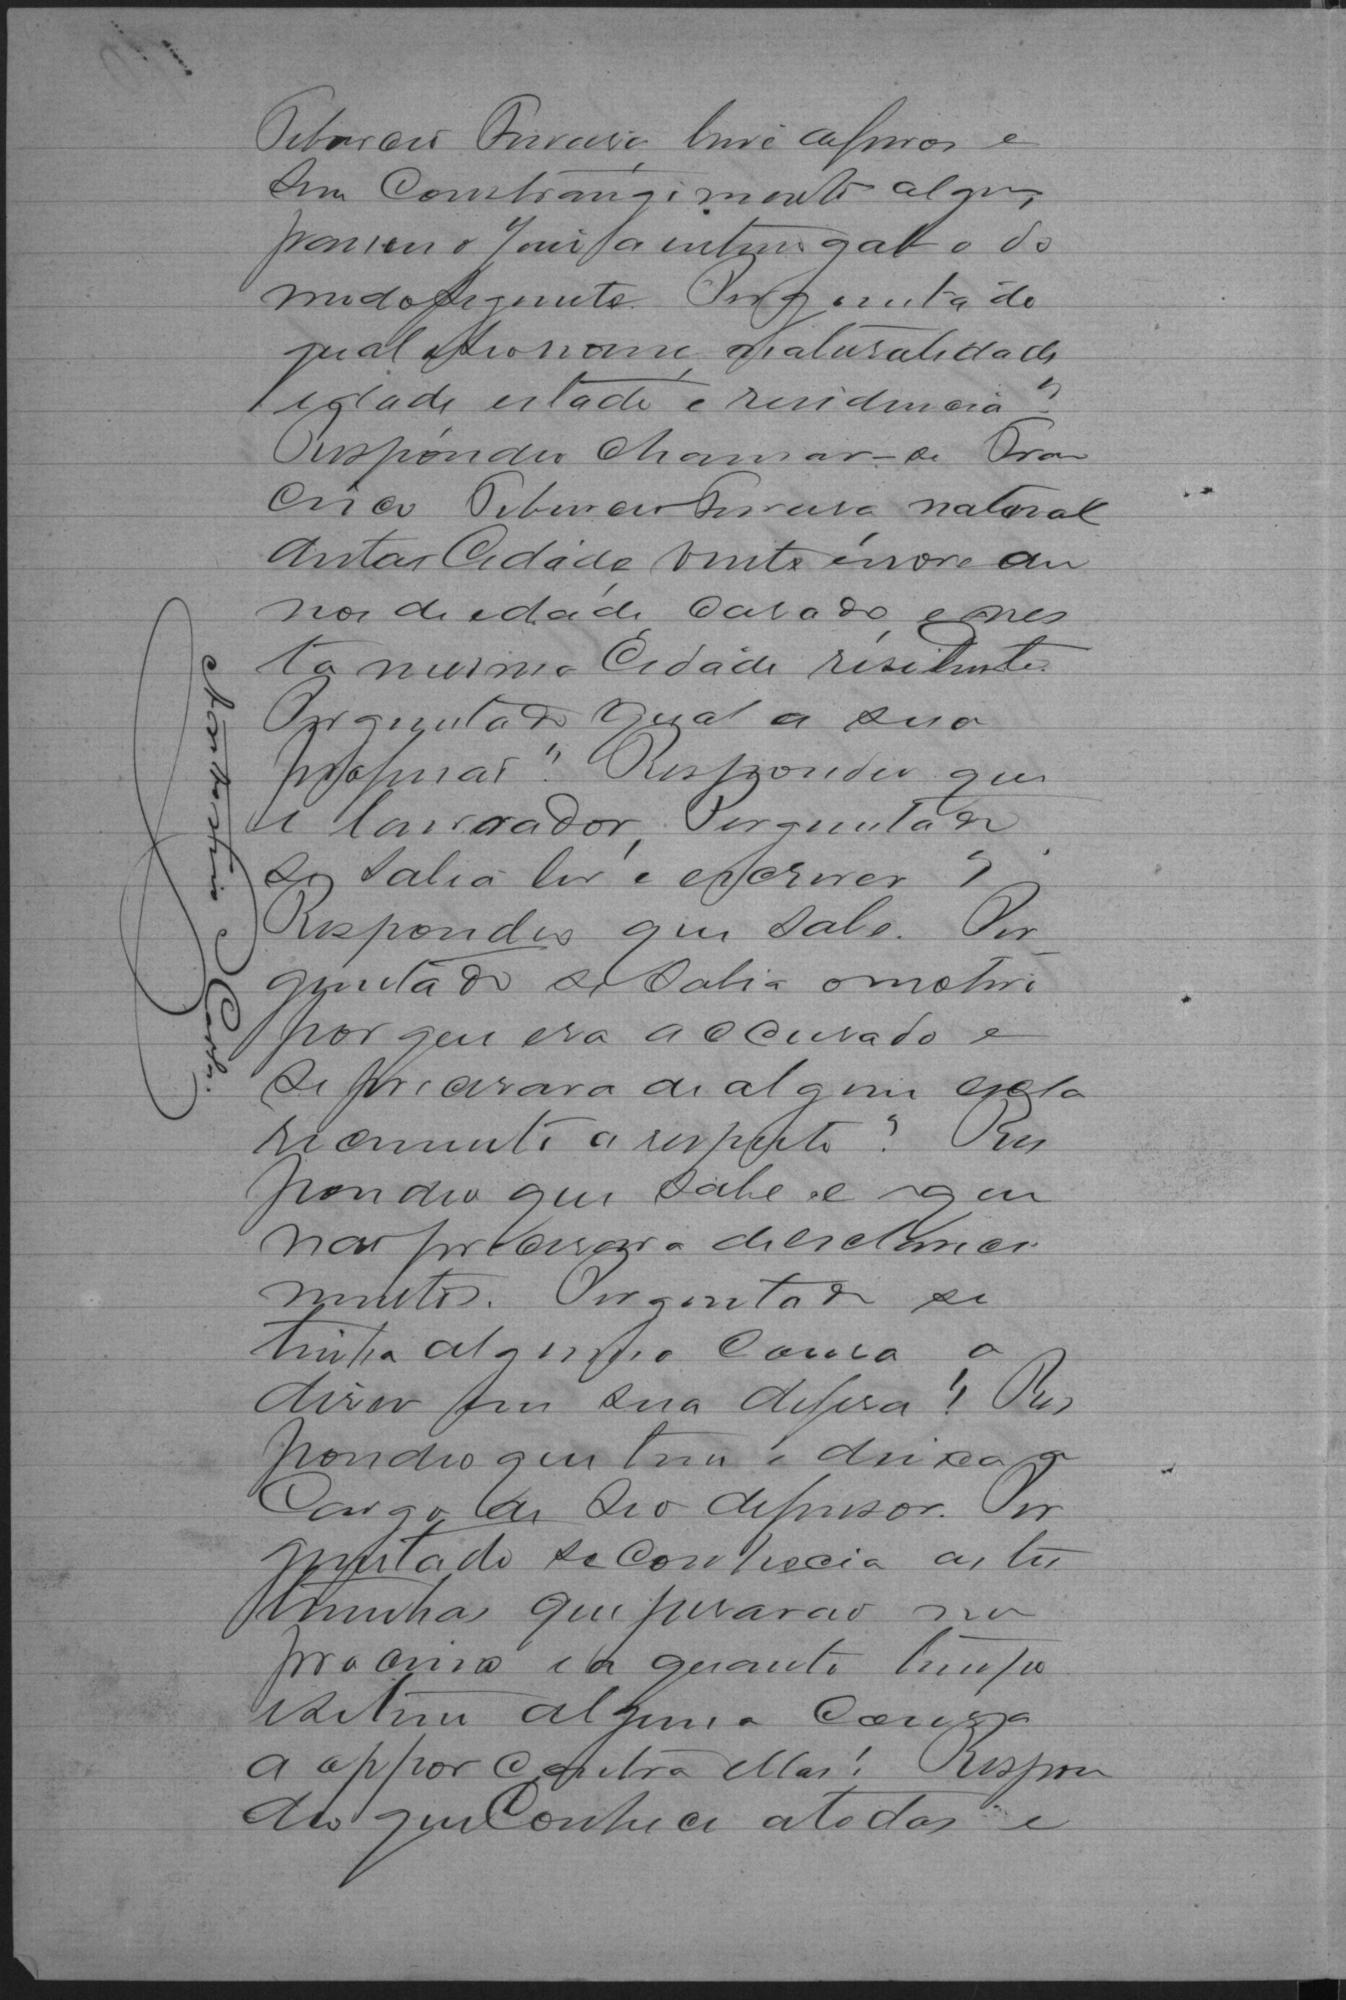 Tiburcio Ferreira, livre de ferros e
sem Constrangimento algum,
passou o Juis a interrogal-o do
modo seguinte. Perguntado
qual o seo nome, naturalidade
edade estado e residencia?
Respondeo chamar-se Fran
cisco Tiburcio Ferreira, natural
desta Cidade, vinte e nove an
nos de edade, casado, e nes
ta mesma Cidade residente.
Perguntado qual a sua
profissão? Respondeo que
é lavrador, Perguntado
se sabia ler e escrever?
Respondeo que sabe. Per
guntado se sabia o motivo
por que era accusado e
se precisava de algum escla
recimento a respeito? Res
pondeo que sabe e que
não precisava de esclareci
mentos. Perguntado se
tinha alguma cousa a
diser em sua defesa? Res
pondeo que tem e deixa a
Cargo de seo defensor. Per
guntado se conhecia as tes
temunhas que jurarão no
processo e a quanto tempo
e se tem alguma cousa
a oppor contra ellas? Respon
deo que Conhece a todas e